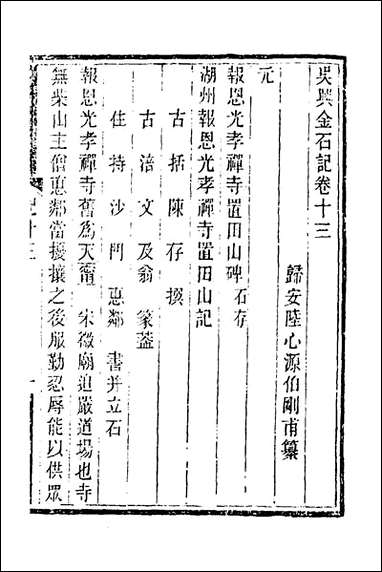 吳興金石記卷十三
歸安陸心源伯剛甫纂
元
報恩光孝禪寺置田山碑 石存
湖州報恩光孝禪寺置田山記
古括陳存撰
古涪文及翁篆蓋
住持沙門惠鄰書并立石
報恩光孝禪寺舊爲天甯 宋徽廟追嚴道場也寺
無柴山主僧惠鄰當擾攘之後服勤忍辱能以供眾
記十三 一